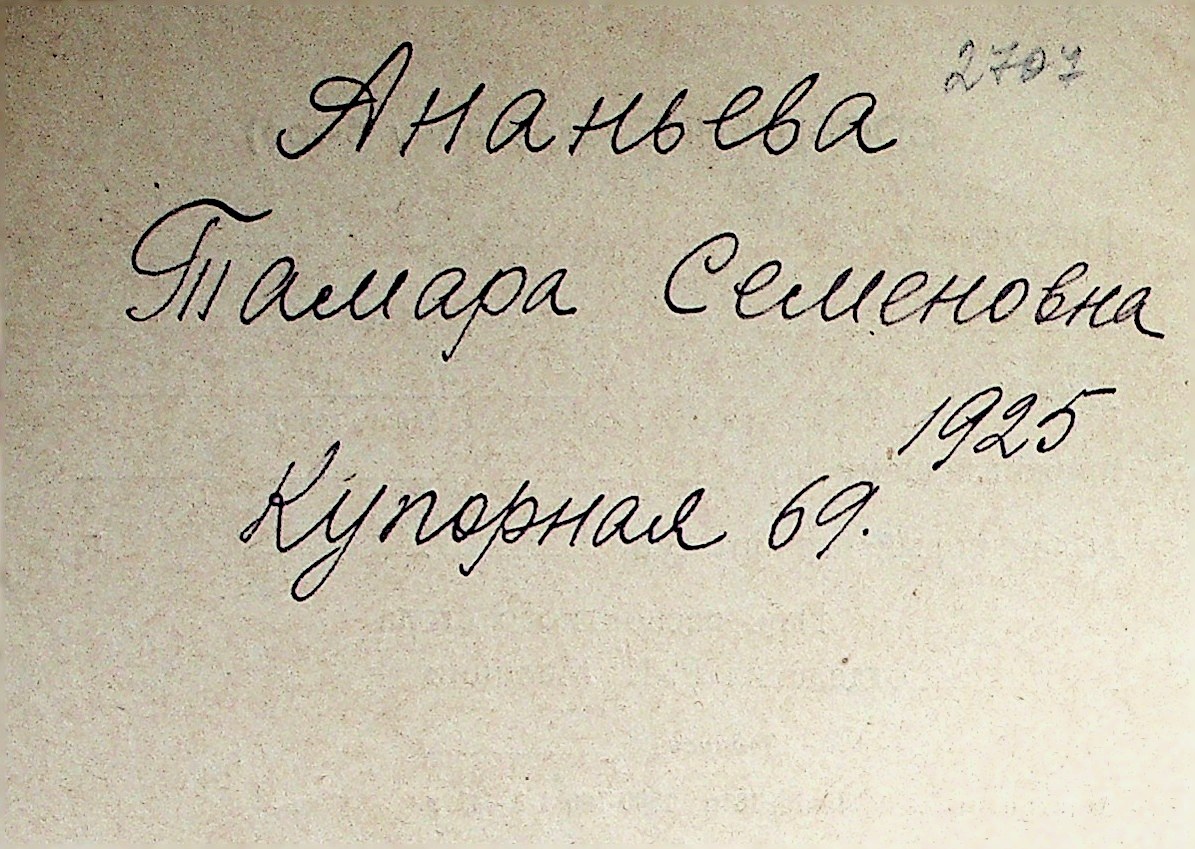 Ананьева 2707
Тамара Семеновна
1925
Купорная 69.